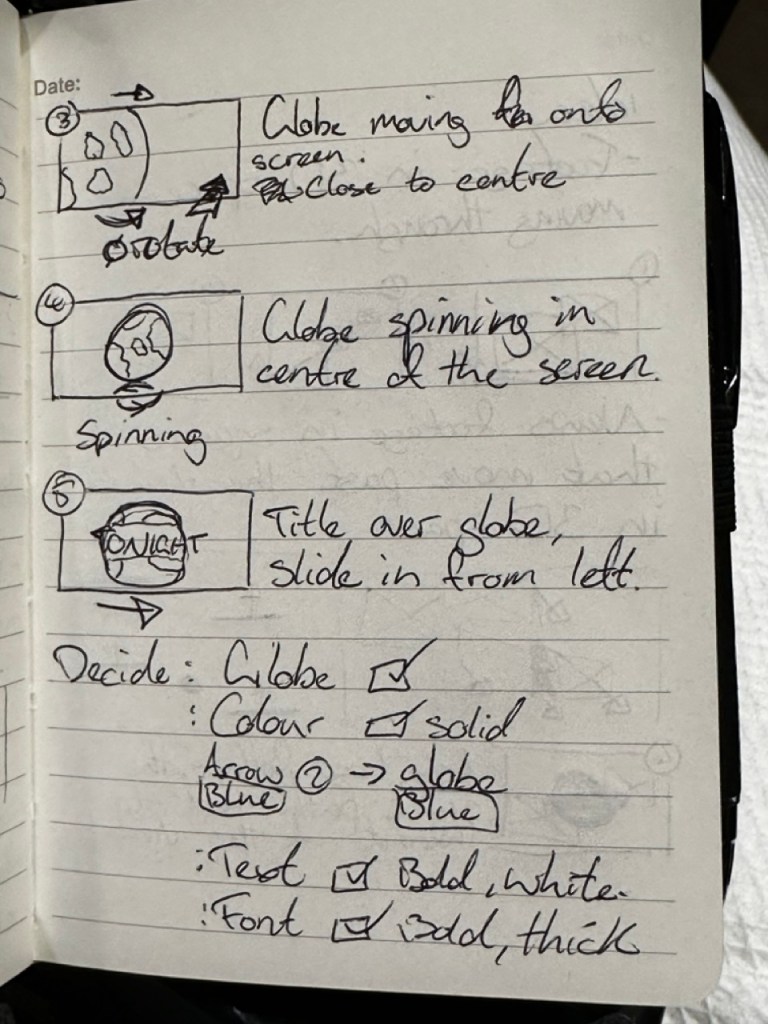 Date:
③ Globe moving onto
screen.
Close to centre
rotate
④ Globe spinning in
centre of the screen.
Spinning
⑤ TONIGHT Title over globe,
slide in from left.
Decide: Globe ☑
: Colour ☑ solid
Arrow ② → globe
Blue Blue
: Text ☑ Bold, white.
: Font ☑ Bold, thick